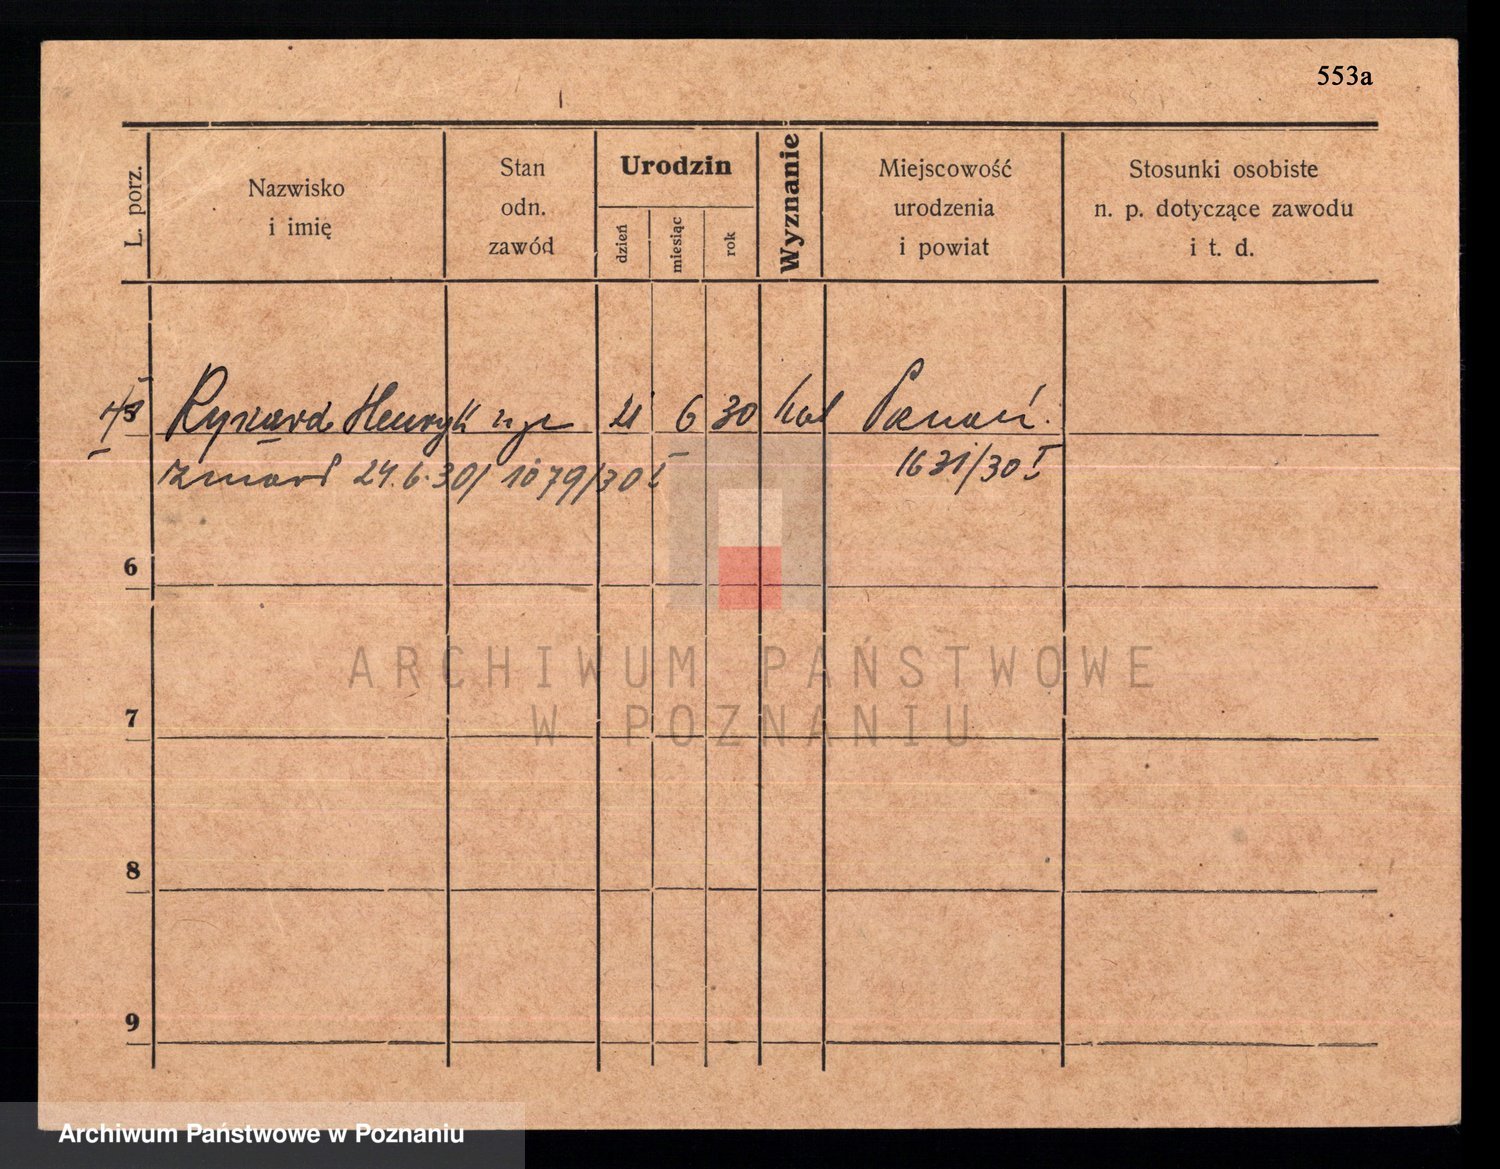 553a
L. porz.
Nazwisko
i imię
Stan
odn.
zawód
Urodzin
dzień
miesiąc
rok
Wyznanie
Miejscowość
urodzenia
i powiat
Stosunki osobiste
n. p. dotyczące zawodu
i t. d.
5 Ryszard Henryk 21 6 30 kat Poznań.
zmarł 24.6.30/ 1079/30 I 1631/30 I
6
ARCHIWUM PAŃSTWOWE
W POZNANIU
7
8
9
Archiwum Państwowe w Poznaniu